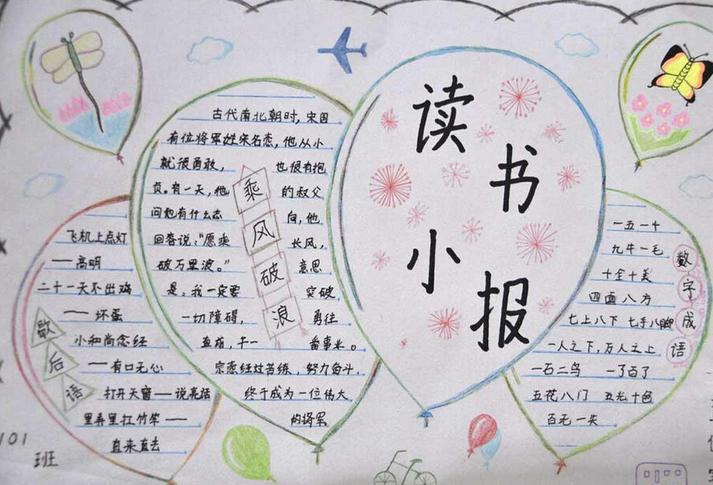 读书小报
乘风破浪
古代南北朝时，宋国
有位将军姓宋名悫，他从小
就很勇敢，也很有抱
负，有一天，他的叔父
问他有什么志向，他
回答说，“愿乘长风，
破万里浪。”意思
是：我一定要突破
一切障碍，勇往
直前，干一番事业。
宗悫经过苦练，努力奋斗，
终于成为一位伟大
的将军
歇后语
飞机上点灯
——高明
二十一天不出鸡
——坏蛋
小和尚念经
——有口无心
打开天窗——说亮话
里弄里扛竹竿——
直来直去
数字成语
一五一十
九牛一毛
十全十美
四面八方
七上八下 七手八脚
一人之下，万人之上
一石二鸟 一了百了
五花八门 五光十色
百无一失
101
班